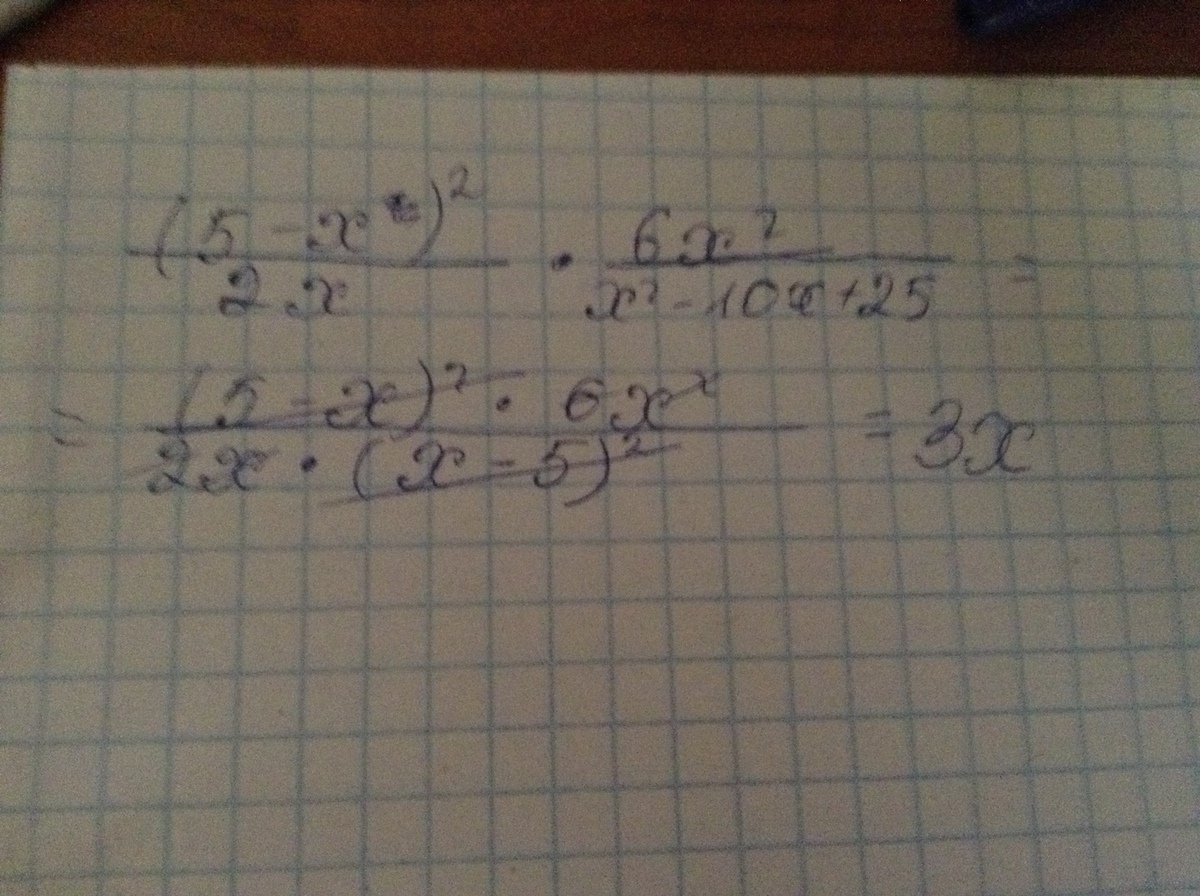 (5 - x)² / 2x · 6x² / x² - 10x + 25 =
= (5 - x)² · 6x² / 2x · (x - 5)² = 3x